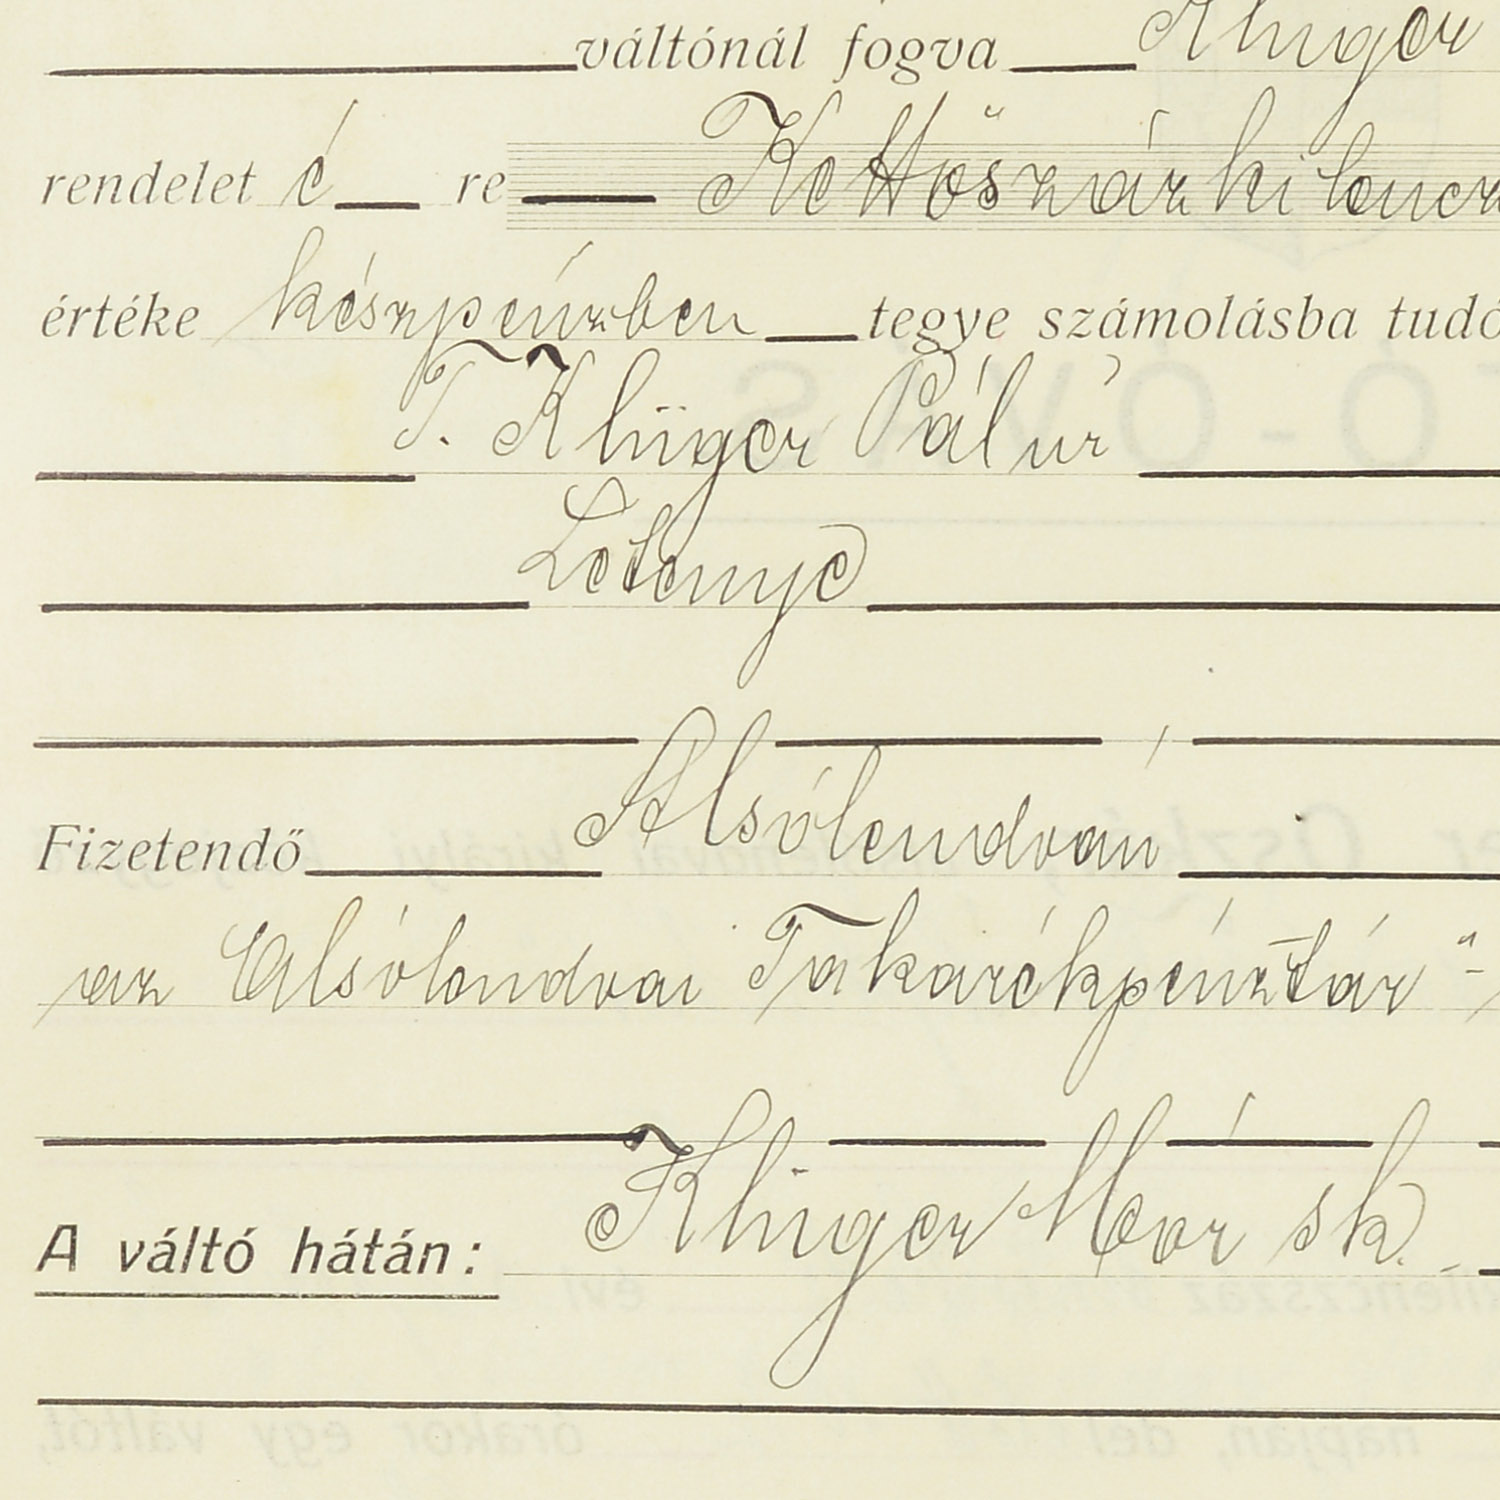 váltónál fogva Klüger
rendelet é re Kettőszázkilencz
értéke készpénzben tegye számolásba tudó
T. Klüger Pál úr
Letenye
Fizetendő Alsólendván
az Alsólendvai Takarékpénztár"-
A váltó hátán: Klüger Mór sk.